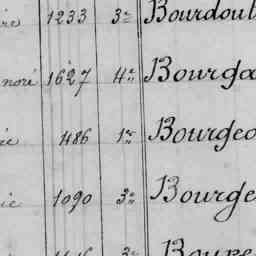 re 1233 3e Bourdoul
noré 1627 4e Bourga
ie 486 1re Bourgeo
ie 1090 3e Bourge